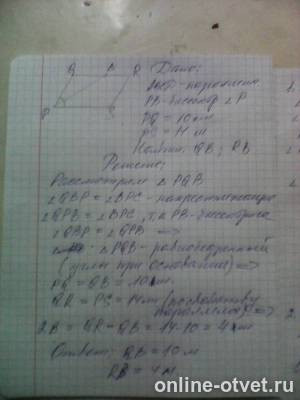 Q B R Дано:
P S PQRS - параллел
PB - биссектр ∠P
PQ = 10 см
PS = 14 м
Найти: QB; RB
Решение:
Рассмотрим △PQB
∠QBP = ∠BPS - накрестлежащие
∠QPB = ∠BPS, т.к PB - биссектриса
∠QBP = ∠QPB =>
△PQB - равнобедренный
(углы при основании) =>
PQ = QB = 10 м
QR = PS = 14 м (по свойству
параллел) =>
RB = QR - QB = 14 - 10 = 4 м
Ответ: QB = 10 м
RB = 4 м
online-otvet.ru